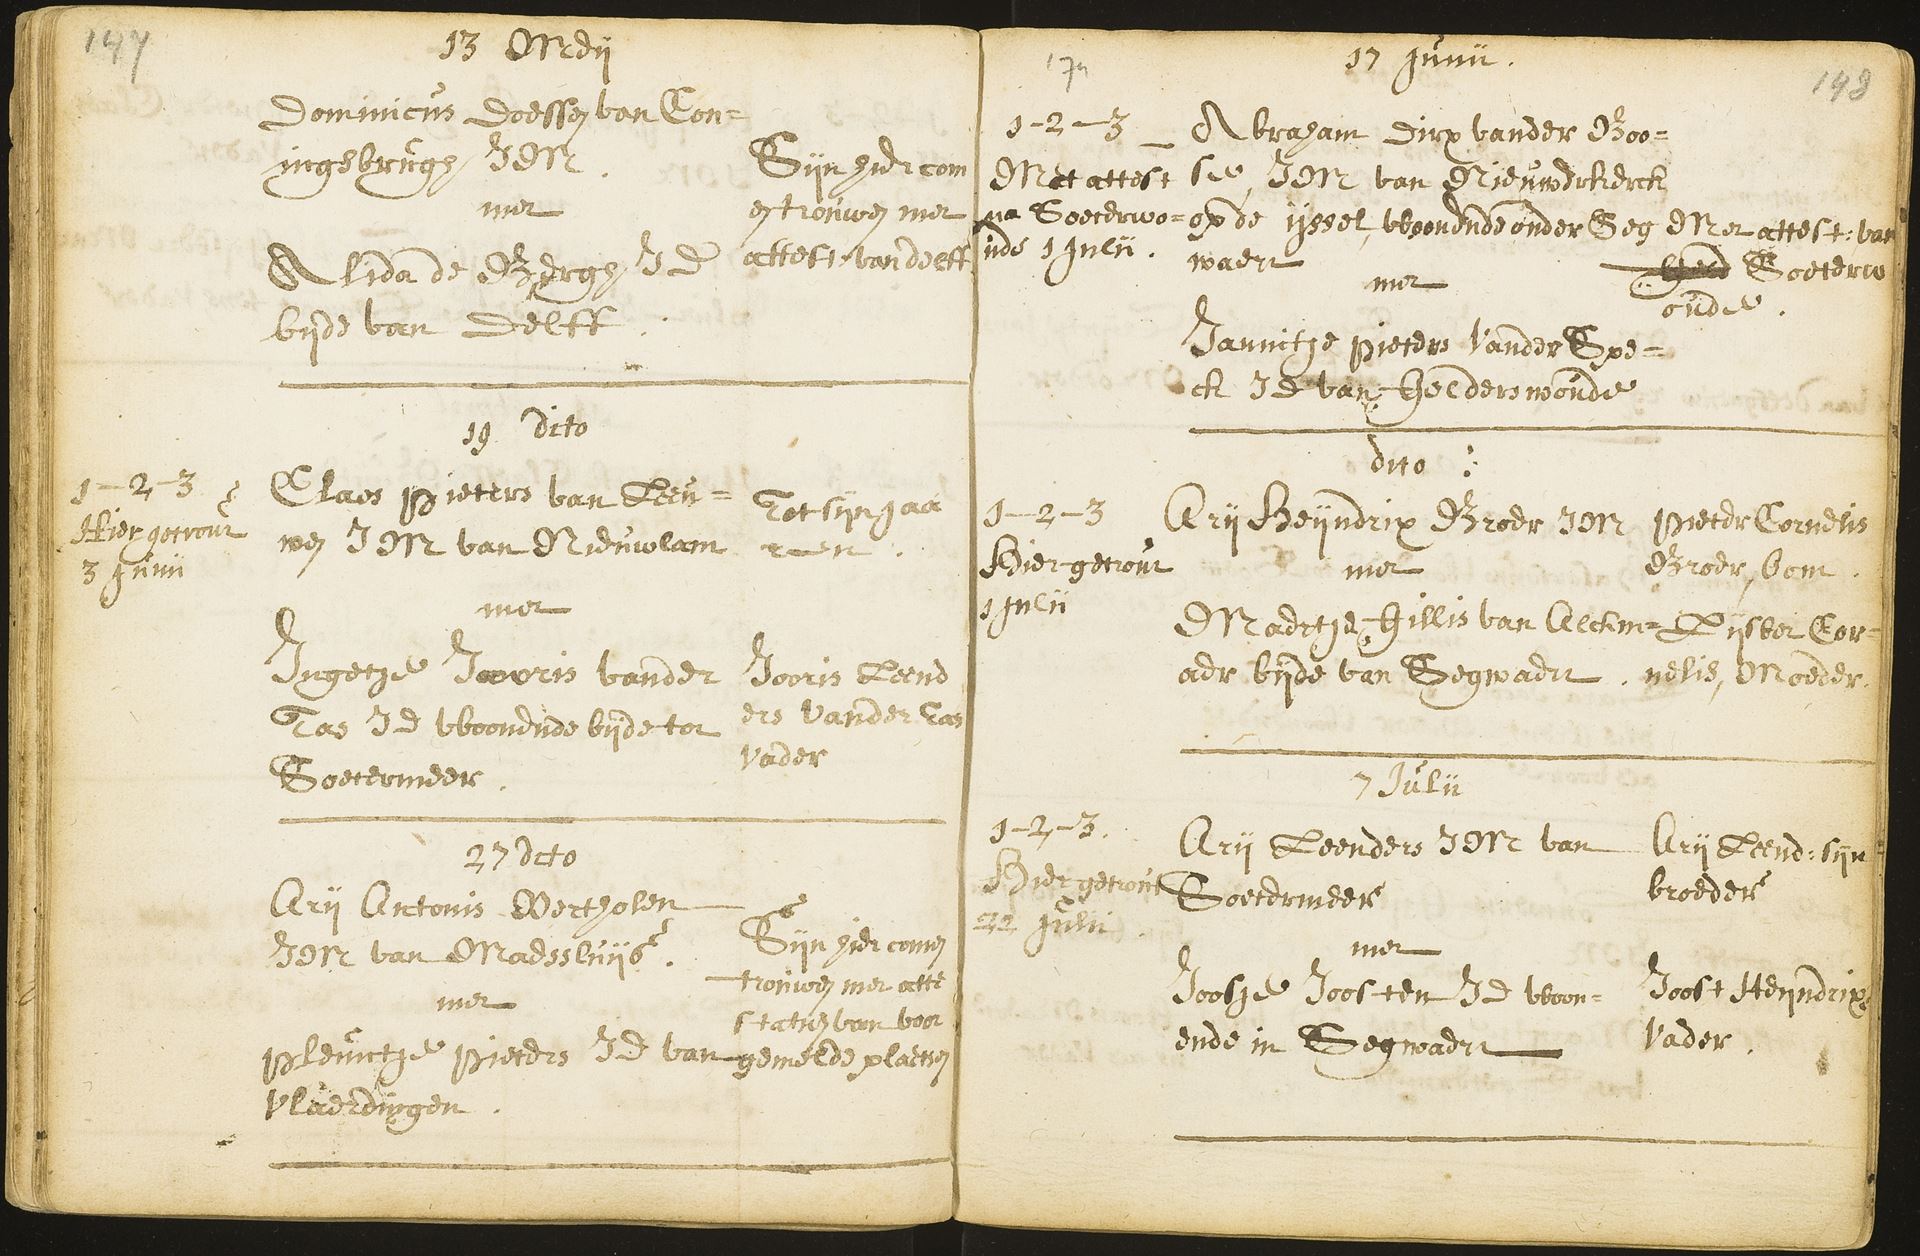 147
13 Meij
Dominicus Doessen van Con=
ingsbrugh JM.
met
Alida de Bergh JD
beijde van Delft.
Sijn hier com
en trouwen met
attest. van delft
19 Dito
1-2-3
Hier getrout
3 Junii
Claes Pieters van Leeu=
wen JM van Nieuwlant
met
Ingetje Jooris vander
Tas JD woonende beijde tot
Soetermeer.
Tot sijn jaa
ren.
Jooris Leend
ers vander Tas
vader
27 Dito
Arij Antonis Vertholen
JM van Maessluijs.
met
Pleuntje Pieters JD van
Vlaerdingen.
Sijn hier comen
trouwen met atte
statien van voor
gemelde plaetsen
174
148
17 Junii.
1-2-3
Met attest
na Soeterwo=
ude 1 Julii.
Abraham Dirx vander Boo=
se, JM van Nieuwerkerck
op de ijssel, woonende onder Seg
waert
met
Jannitje Pieters vander Spe=
ck JD van Gelderswoude
Met attest: van
Soeterw
oude.
dito:
1-2-3
Hier getrout
1 Julii
Arij Heijndrix Broer JM
met
Maertje Gillis van Alckm=
aer beijde van Segwaert.
Pieter Cornelis
Broer, oom.
Lijsbet Cor=
nelis, Moeder.
7 Julii
1-2-3.
Hier getrout
22 Julii.
Arij Leenders JM van
Soetermeer
met
Joosje Joosten JD woon=
ende in Segwaert
Arij Leend: sijn
broeder
Joost Heijndrix
Vader.